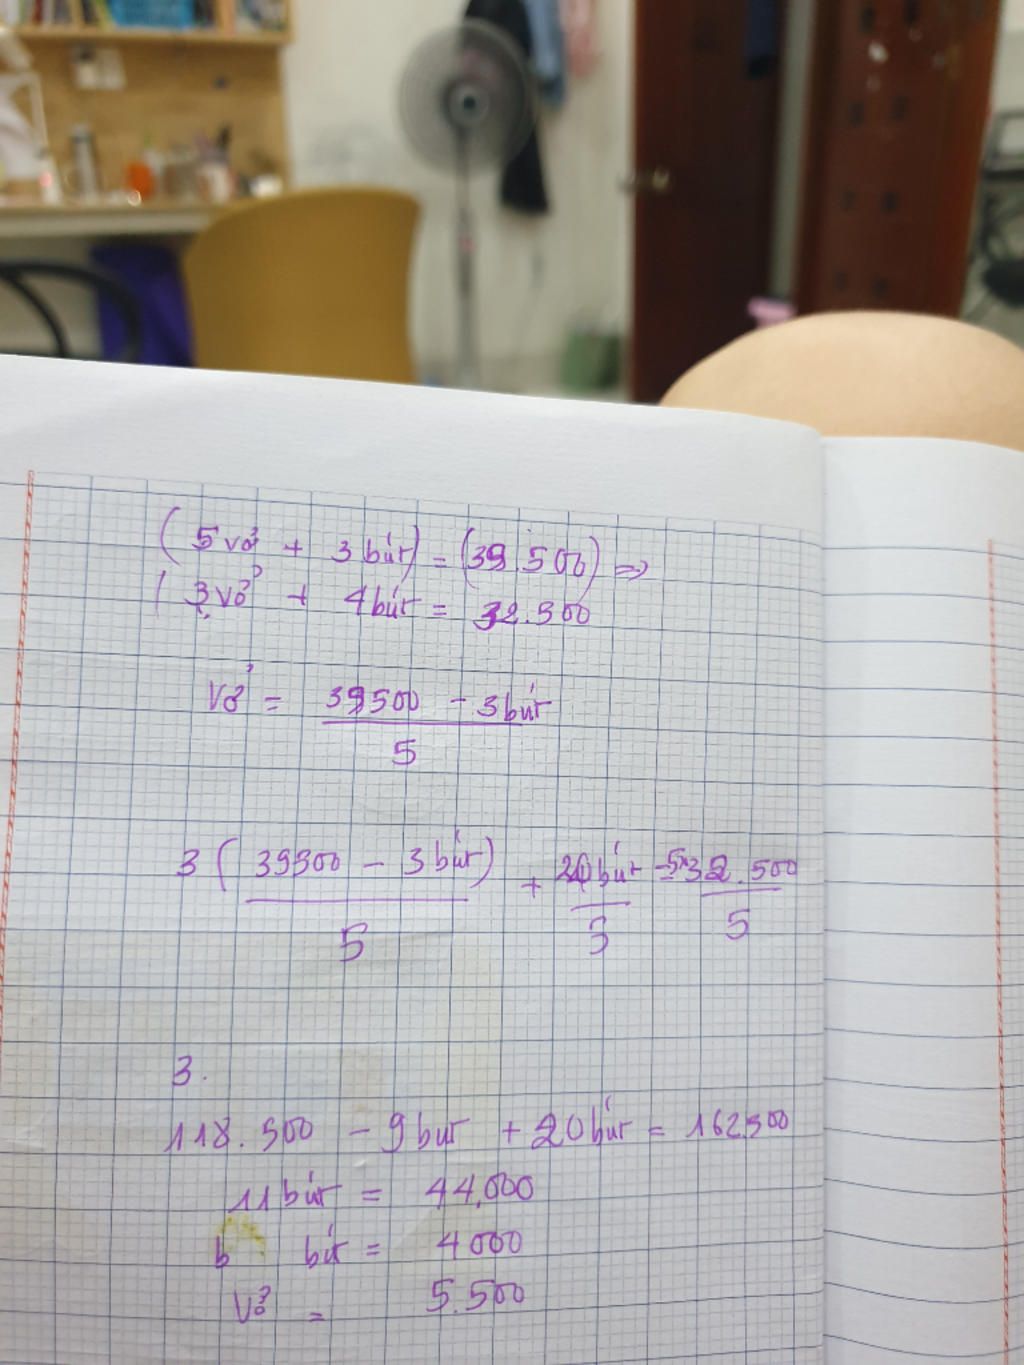 (5 vở + 3 bút) = (39.500) =>
(3 vở + 4 bút = 32.500
Vở = 39500 - 3 bút
5
3 (39500 - 3 bút) + 20 bút = 5x32.500
5 5 5
3.
118.500 - 9 bút + 20 bút = 162500
11 bút = 44,000
b bút = 4000
Vở = 5.500